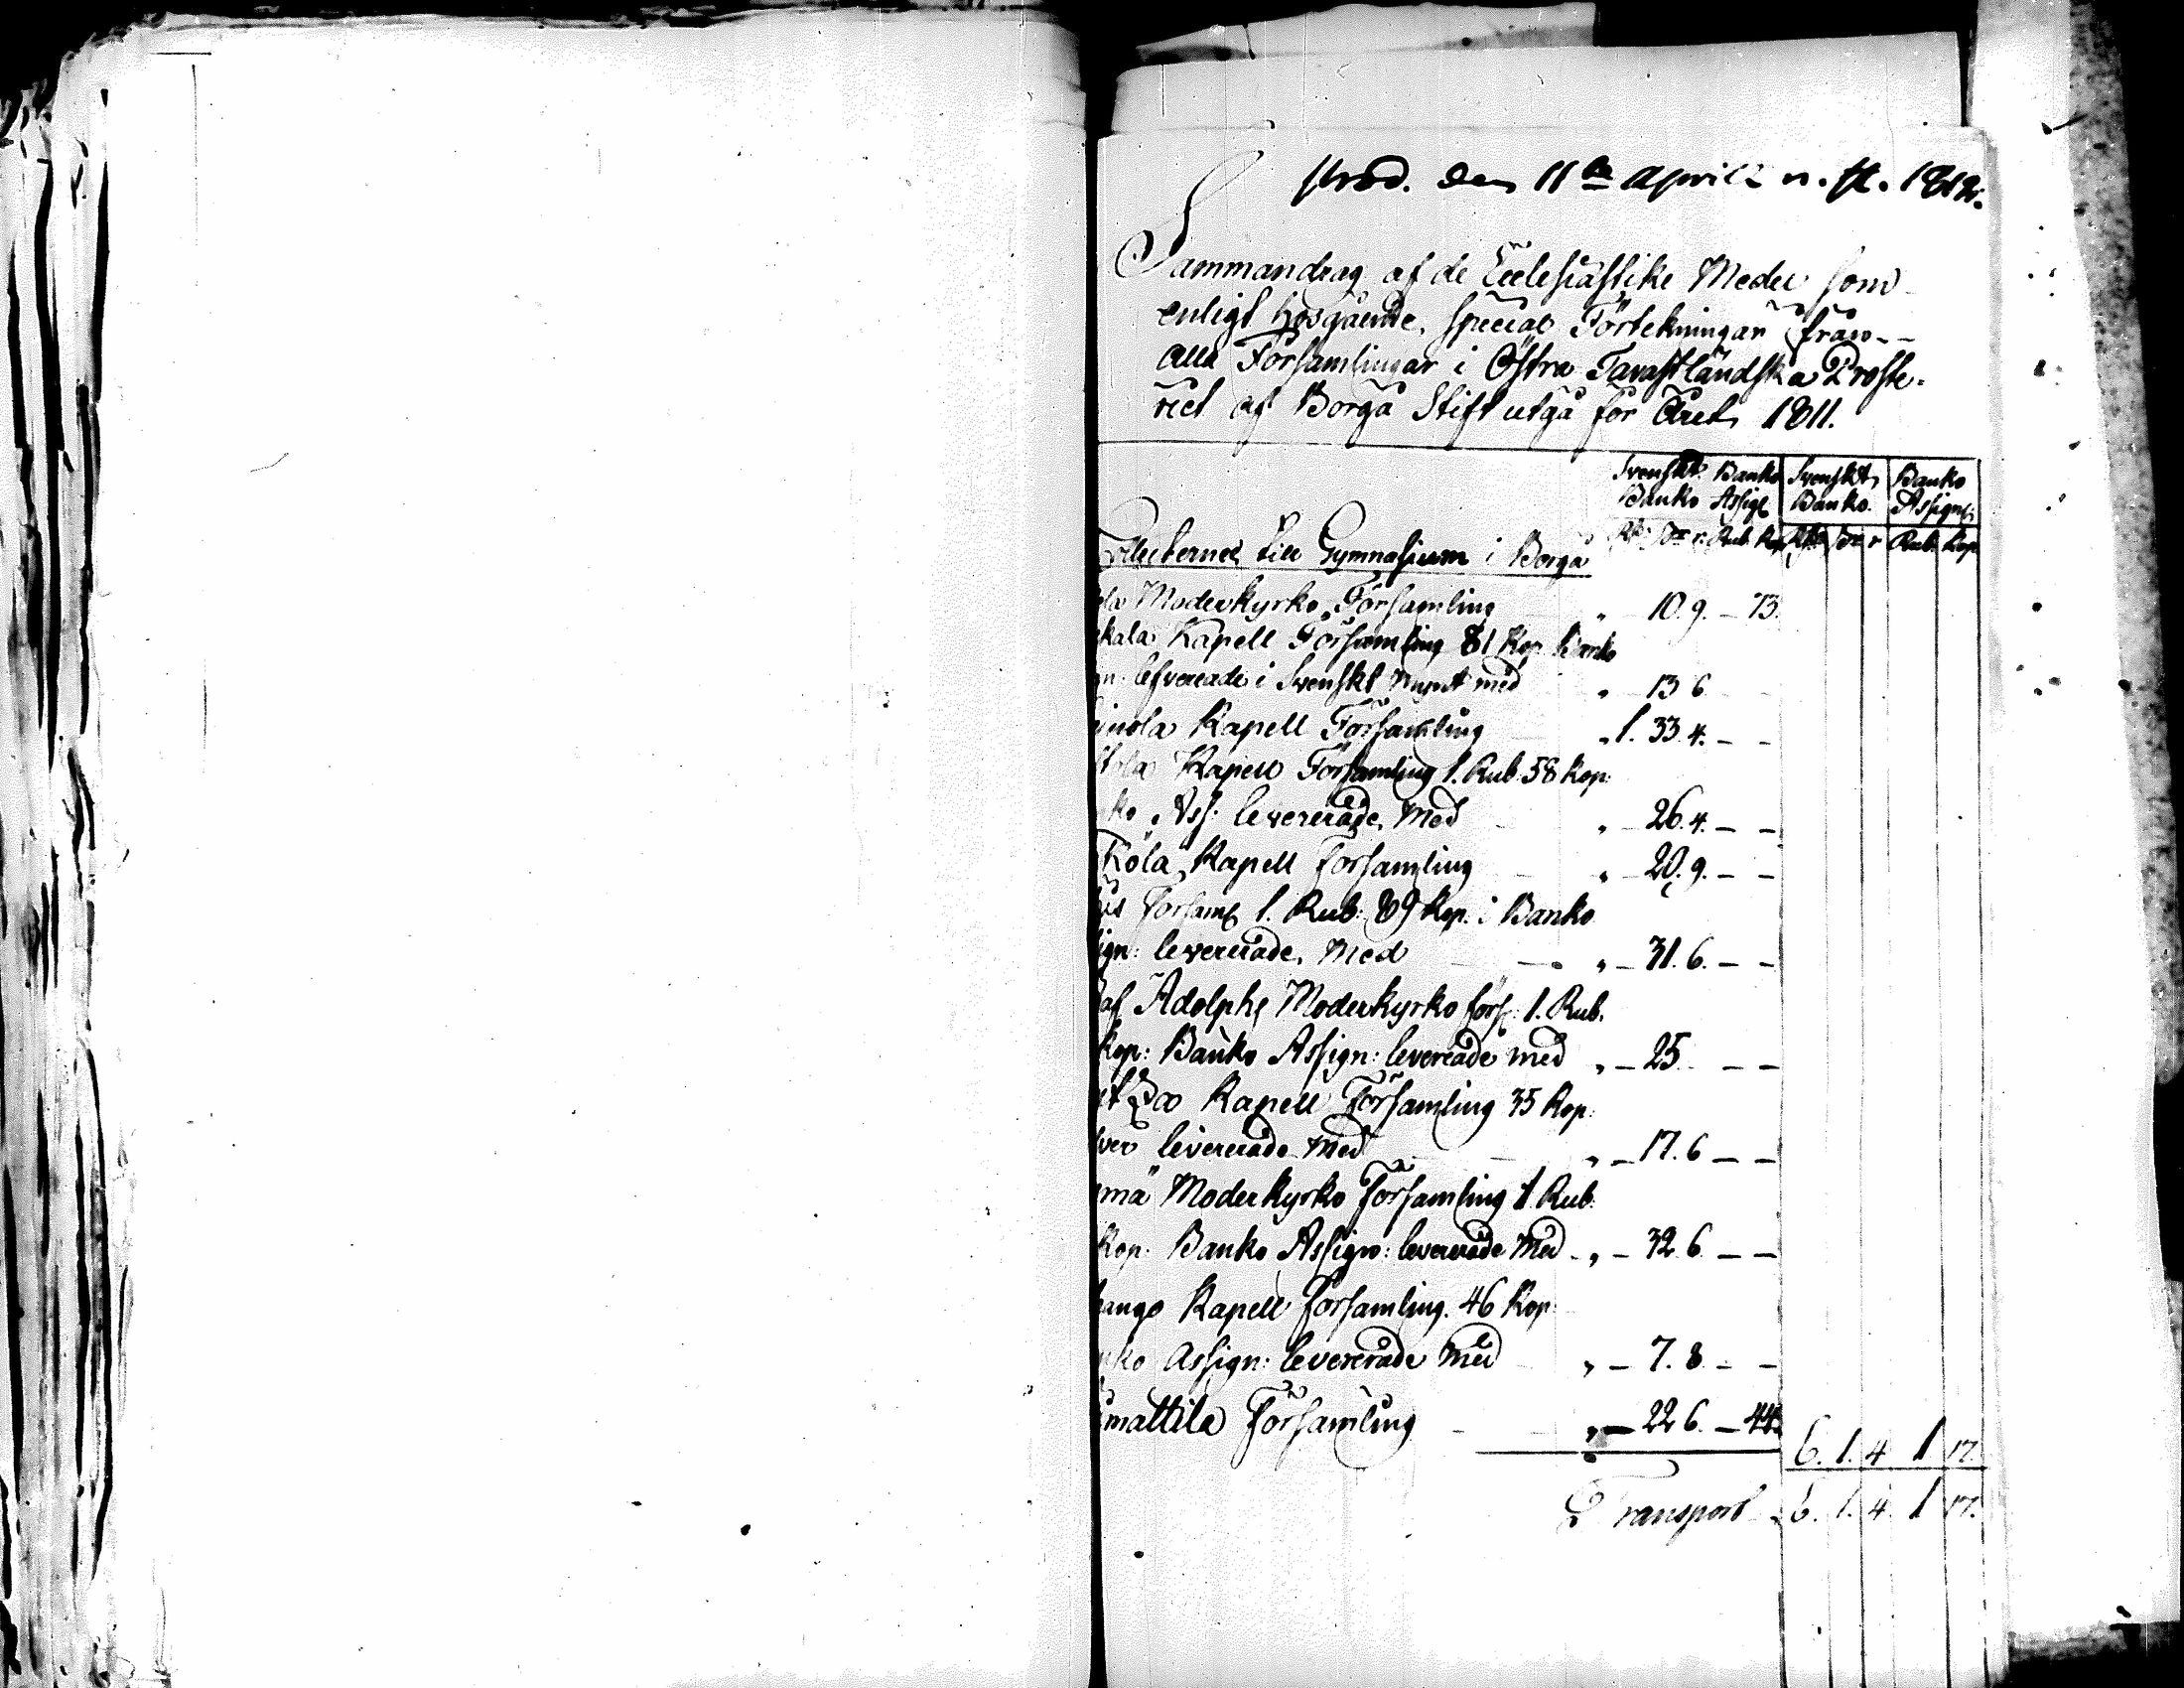 prod. den 11te April n. st. 1812.
Sammandrag af de Ecclesiastike Medel som
enligt hosgående special Förtekningar från
alla Församlingar i Östra Tavastländska Proste-
riet af Borgå Stift utgå för Året 1811.
Svenskt Banko Svenskt Banko
Banko Assign Banko. Assign:
Rd: s: r: Rub. Kop Rd s: r Rub: Kop
ollecterne till Gymnasium i Borgå
ola Moderkyrko Församling " - 10. 9. - 73.
kala Kapell Församling 81 Kop. Banko
gn: lefvererade i Svenskt mynt med " - 13 6. -
inola Kapell Församling " 1. 33. 4. - -
stola Kapell Församling 1. Rub. 58 Kop:
nko Ass: levererade med " - 26. 4. - -
Kola Kapell Församling " - 20. 9. - -
Församl 1. Rub: 89 Kop. i Banko
ign: levererade med " - 31. 6. - -
af Adolphs Moderkyrko förs: 1. Rub.
Kop: Banko Assign: levererade med " - 25. - -
Kapell Församling 35 Kop:
lver levererade med " - 17. 6 - -
mä Moderkyrko Församling 1. Rub.
Kop: Banko Assign: levererade med " - 32. 6. - -
ango Kapell församling. 46 Kop:
nko Assign: levererade med " - 7. 8. - -
mattila Församling " - 22 6. - 44. 6. 1. 4 1 17.
Transport 6. 1. 4. 1 17.